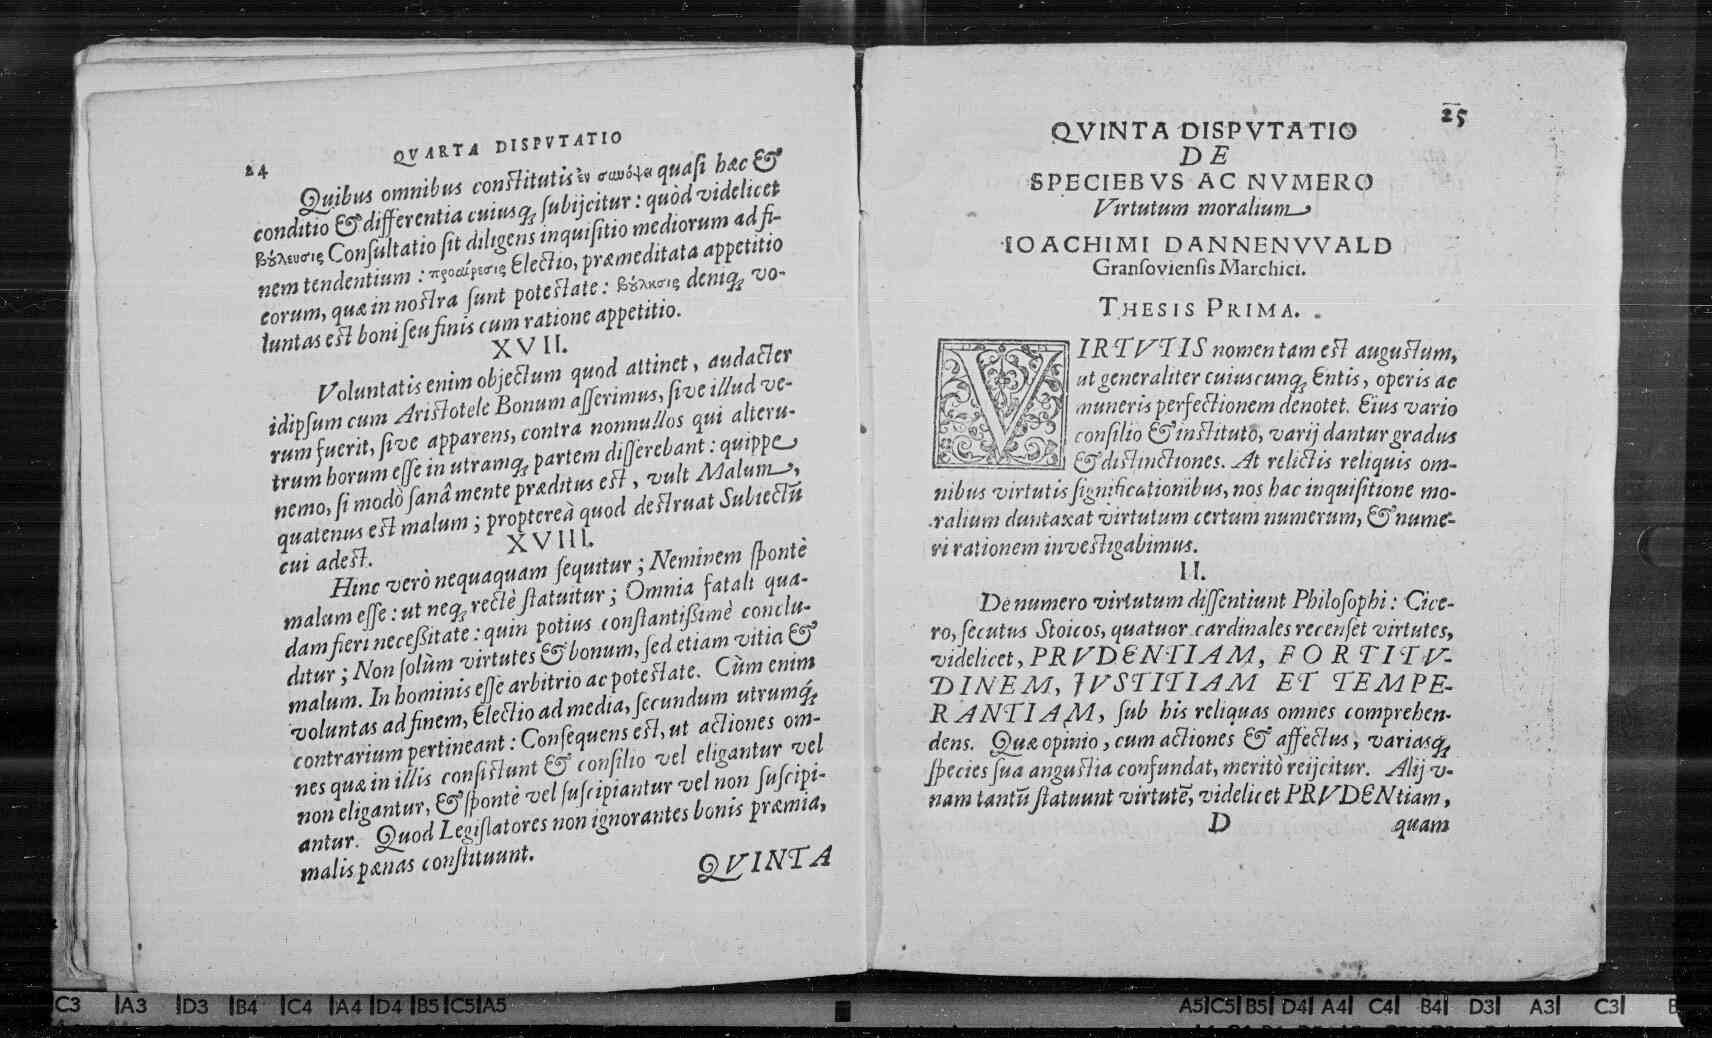 24
QVARTA DISPVTATIO
Quibus omnibus constitutis ἐν συνόψει quasi hæc &
conditio & differentia cuiusq; subijcitur: quòd videlicet
βȣ́λευσις Consultatio sit diligens inquisitio mediorum ad fi-
nem tendentium: προαίρεσις Electio, præmeditata appetitio
eorum, quæ in nostra sunt potestate: βȣ́λησις deniq; vo-
luntas est boni seu finis cum ratione appetitio.
XVII.
Voluntatis enim objectum quod attinet, audacter
idipsum cum Aristotele Bonum asserimus, sive illud ve-
rum fuerit, sive apparens, contra nonnullos qui alteru-
trum horum esse in utramq; partem disserebant: quippe
nemo, si modò sanâ mente præditus est, vult Malum,
quatenus est malum; proptereà quod destruat Subiectū
cui adest.
XVIII.
Hinc verò nequaquam sequitur; Neminem spontè
malum esse: ut neq; rectè statuitur; Omnia fatali qua-
dam fieri necessitate: quin potius constantissimè conclu-
ditur; Non solùm virtutes & bonum, sed etiam vitia &
malum. In hominis esse arbitrio ac potestate. Cùm enim
voluntas ad finem, Electio ad media, secundum utrumq́;
contrarium pertineant: Consequens est, ut actiones om-
nes quæ in illis consistunt & consilio vel eligantur vel
non eligantur, & spontè vel suscipiantur vel non suscipi-
antur. Quod Legislatores non ignorantes bonis præmia,
malis pænas constituunt.
QVINTA
25
QVINTA DISPVTATIO
DE
SPECIEBVS AC NVMERO
Virtutum moralium
IOACHIMI DANNENVVALD
Gransoviensis Marchici.
THESIS PRIMA.
VIRTVTIS nomen tam est augustum,
ut generaliter cuiuscunq; Entis, operis ac
muneris perfectionem denotet. Eius vario
consilio & instituto, varij dantur gradus
& distinctiones. At relictis reliquis om-
nibus virtutis significationibus, nos hac inquisitione mo-
ralium duntaxat virtutum certum numerum, & nume-
ri rationem investigabimus.
II.
De numero virtutum dissentiunt Philosophi: Cice-
ro, secutus Stoicos, quatuor cardinales recenset virtutes,
videlicet, PRVDENTIAM, FORTITV-
DINEM, JVSTITIAM ET TEMPE-
RANTIAM, sub his reliquas omnes comprehen-
dens. Quæ opinio, cum actiones & affectus, variasq́;
species sua angustia confundat, meritò reijcitur. Alij v-
nam tantū statuunt virtutē, videlicet PRVDENtiam,
D
quam
C3 A3 D3 B4 C4 A4 D4 B5 C5 A5
A5 C5 B5 D4 A4 C4 B4 D3 A3 C3 B